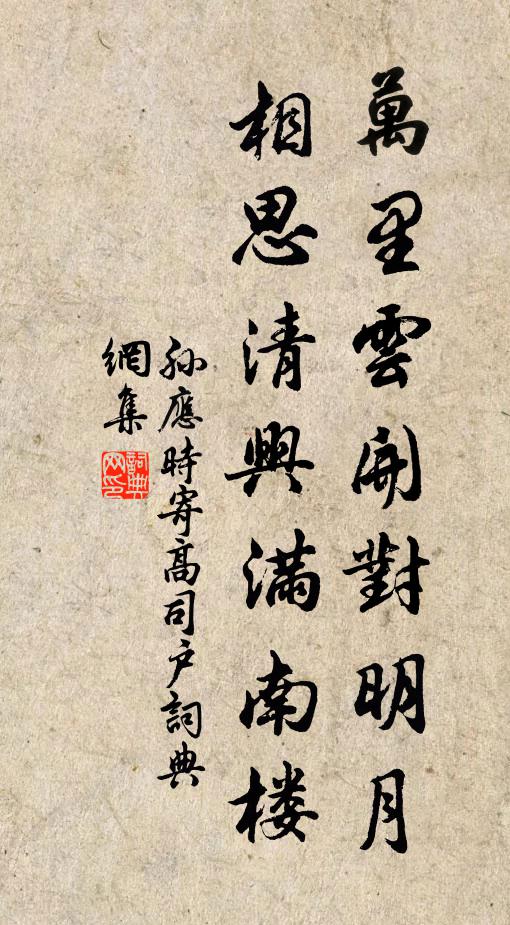 萬里雲開對明月
相思清興满南楼
孙應時寄高司户詞典
網集
詞典
网印